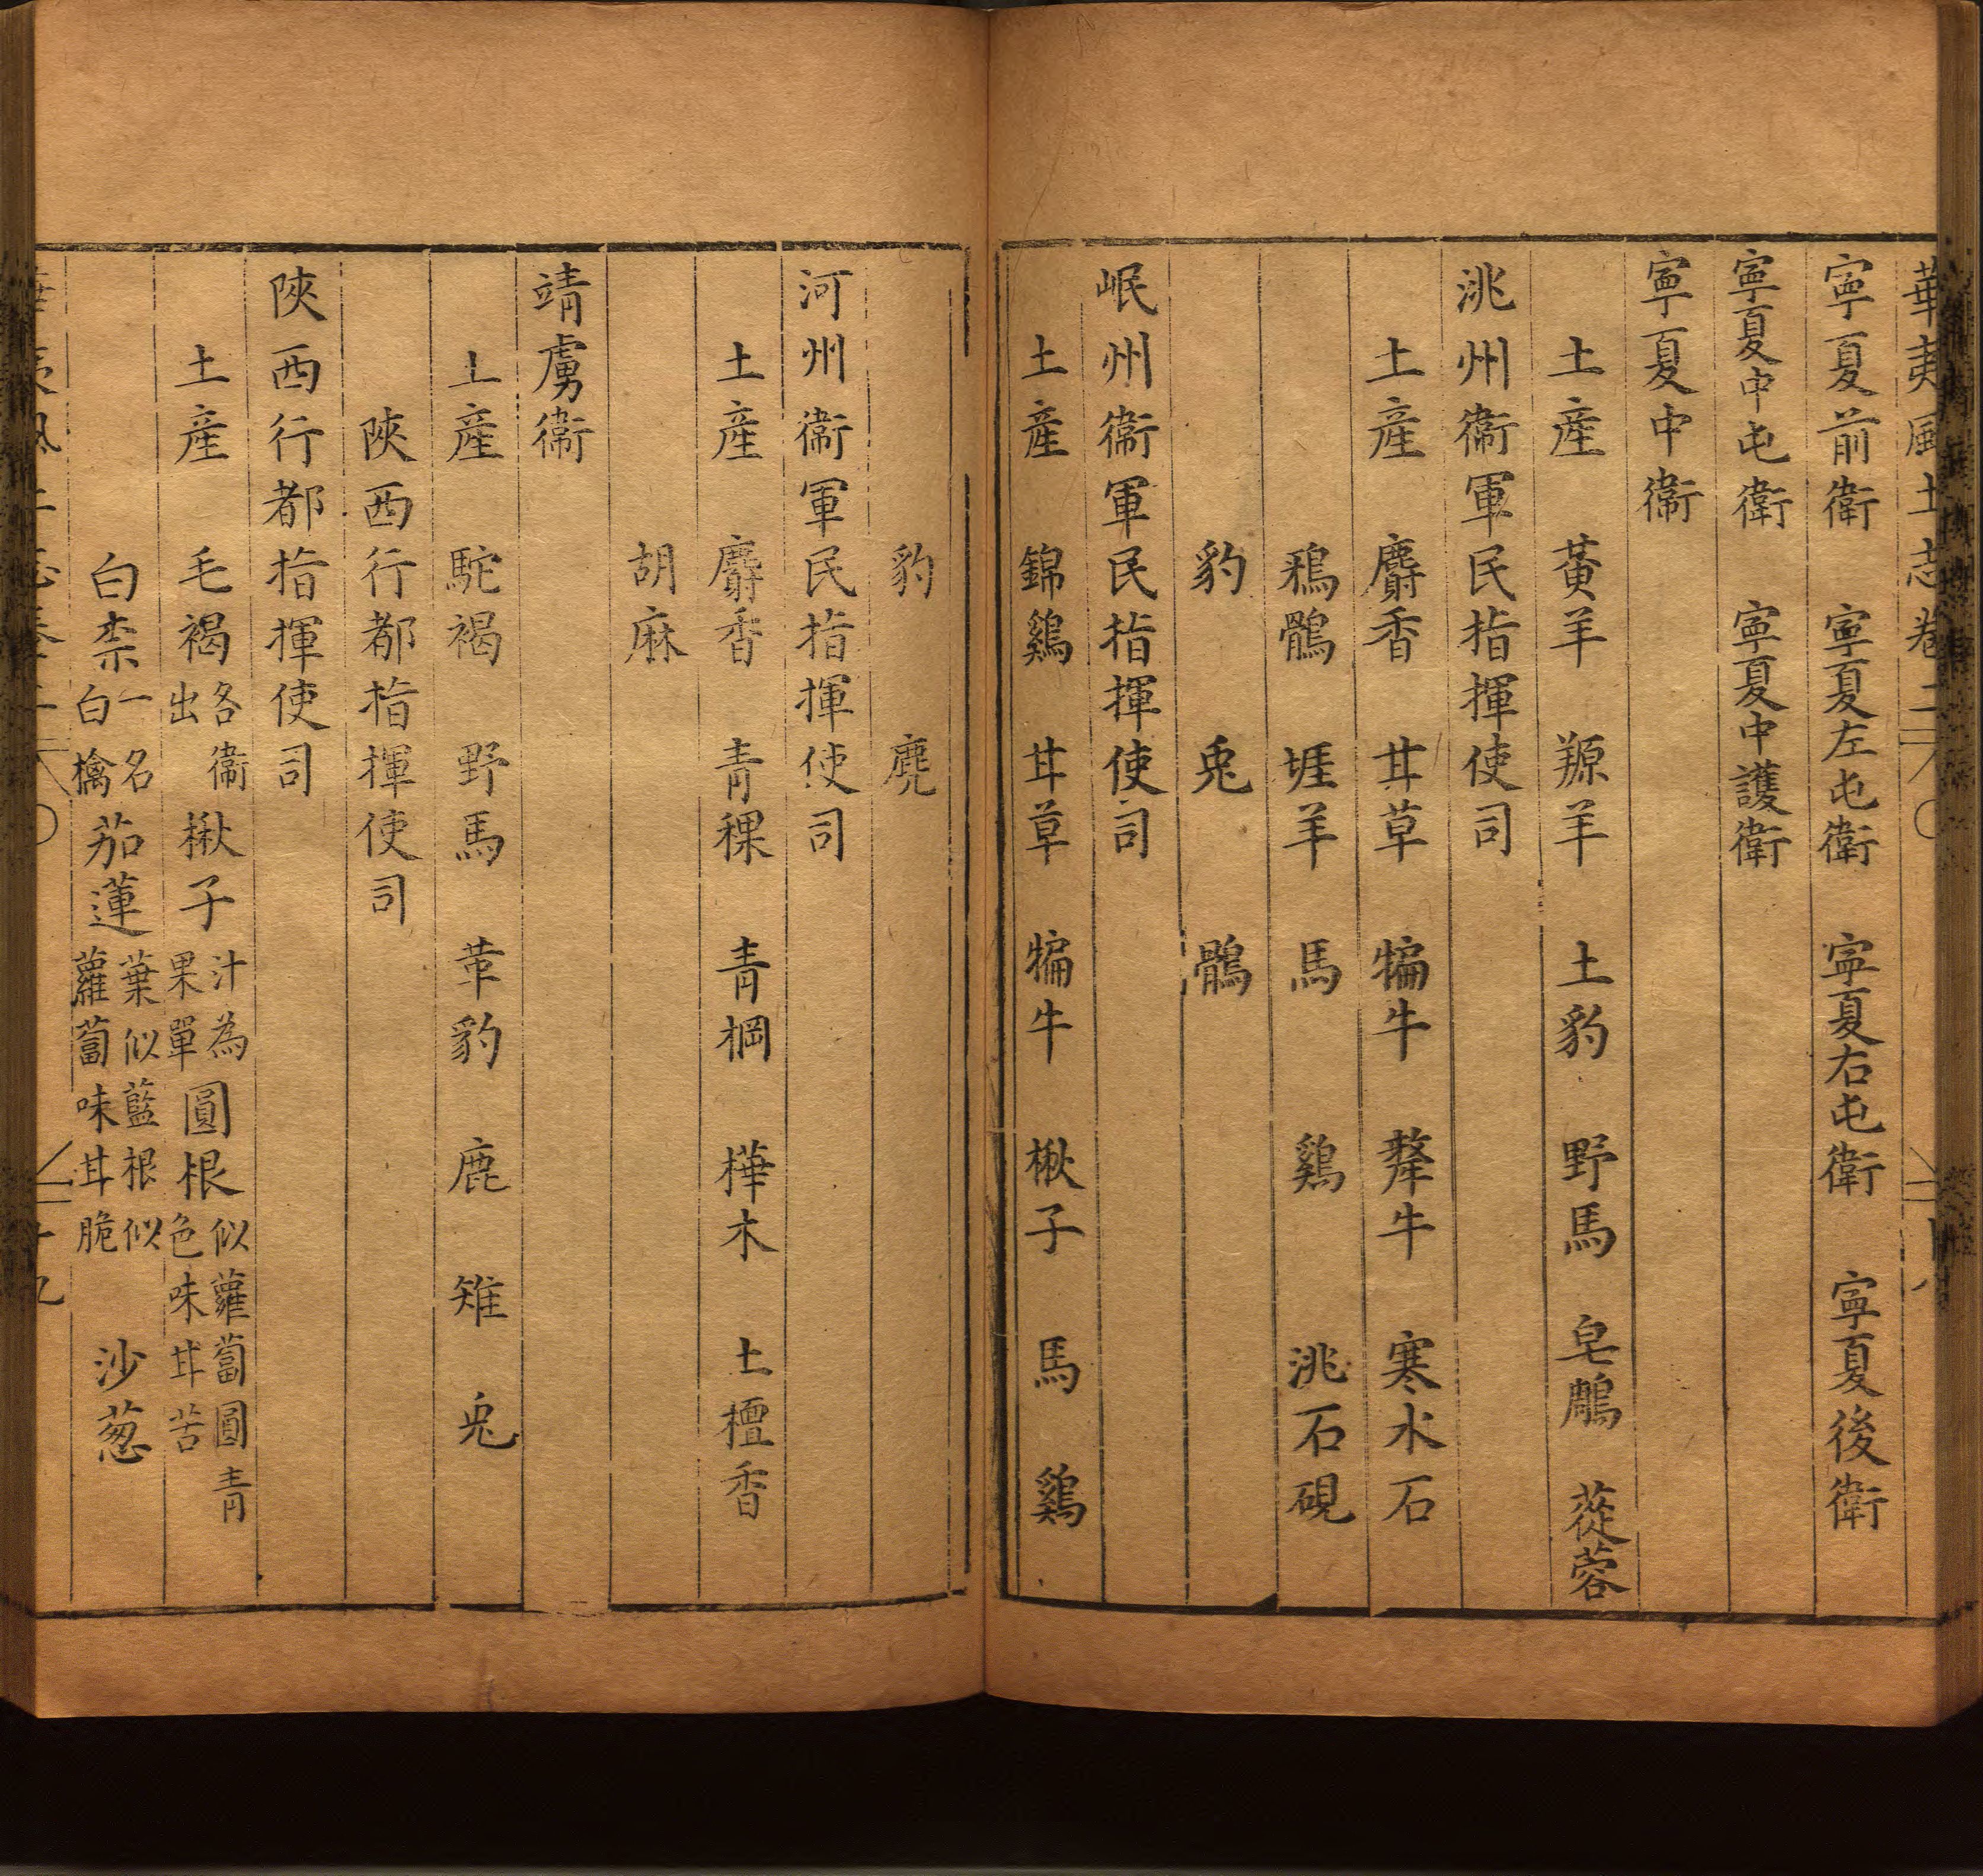 華夷風土志卷二 十八
寧夏前衛 寧夏左屯衛 寧夏右屯衛 寧夏後衛
寧夏中屯衛 寧夏中護衛
寧夏中衛
土産 黃羊 羱羊 土豹 野馬 皂鵰 蓯蓉
洮州衛軍民指揮使司
土産 麝香 甘草 犏牛 犛牛 寒水石
鵶鶻 堐羊 馬 鷄 洮石硯
豹 兎 鶻
岷州衛軍民指揮使司
土産 錦鷄 甘草 犏牛 楸子 馬 鷄
豹 麂
河州衛軍民指揮使司
土産 麝香 青稞 青棡 樺木 土檀香
胡麻
靖虜衛
土産 駝褐 野馬 草豹 鹿 雉 兎
陝西行都指揮使司
陝西行都指揮使司
土産 毛褐各衛出 楸子汁為果單 圓根似蘿蔔圓青色味甘苦
白柰一名白檎 茄蓮葉似藍根似蘿蔔味甘脆 沙葱
十九